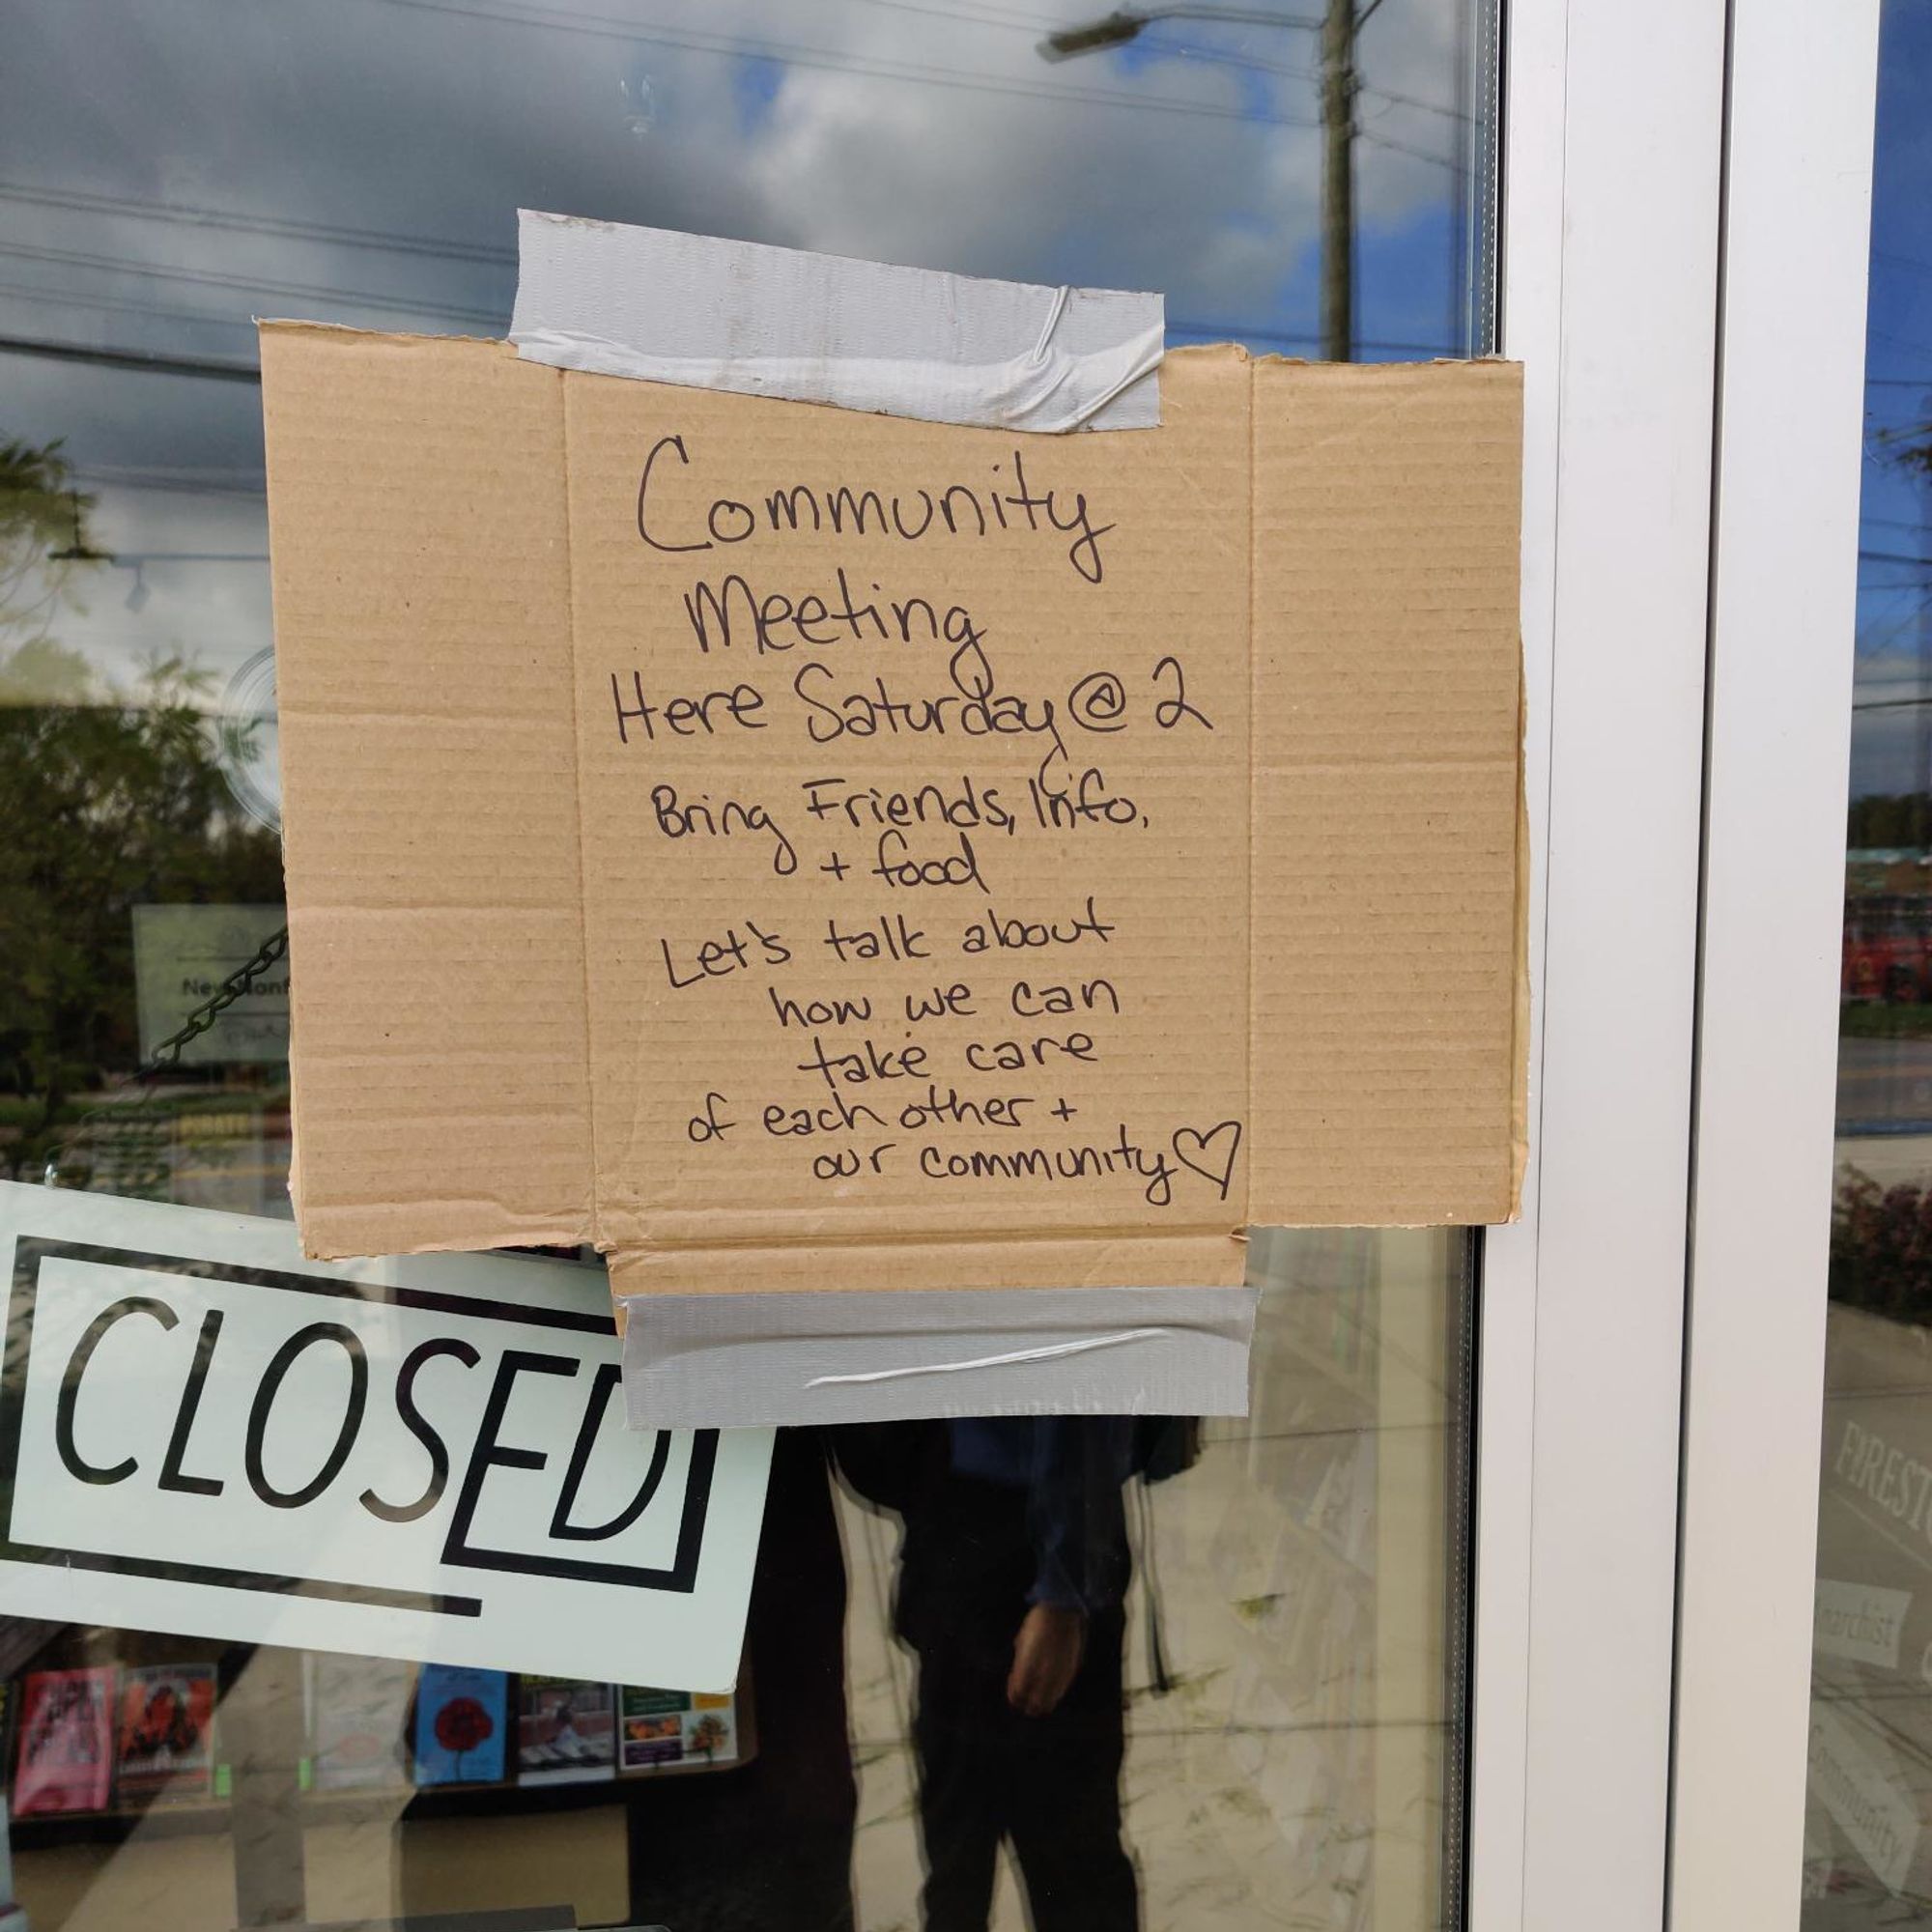 Community
Meeting
Here Saturday @ 2
Bring Friends, Info,
+ food
Let's talk about
how we can
take care
of each other +
our community
CLOSED